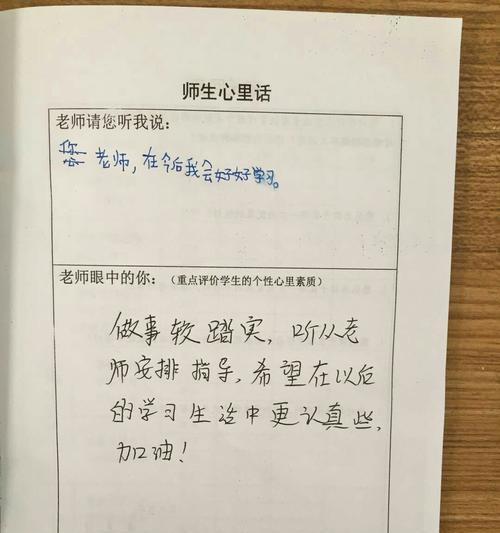 师生心里话
老师请您听我说:
老师,在今后我会好好学习。
老师眼中的你:(重点评价学生的个性心里素质)
做事较踏实,听从老
师安排指导,希望在以后
的学习生活中更认真些,
加油!